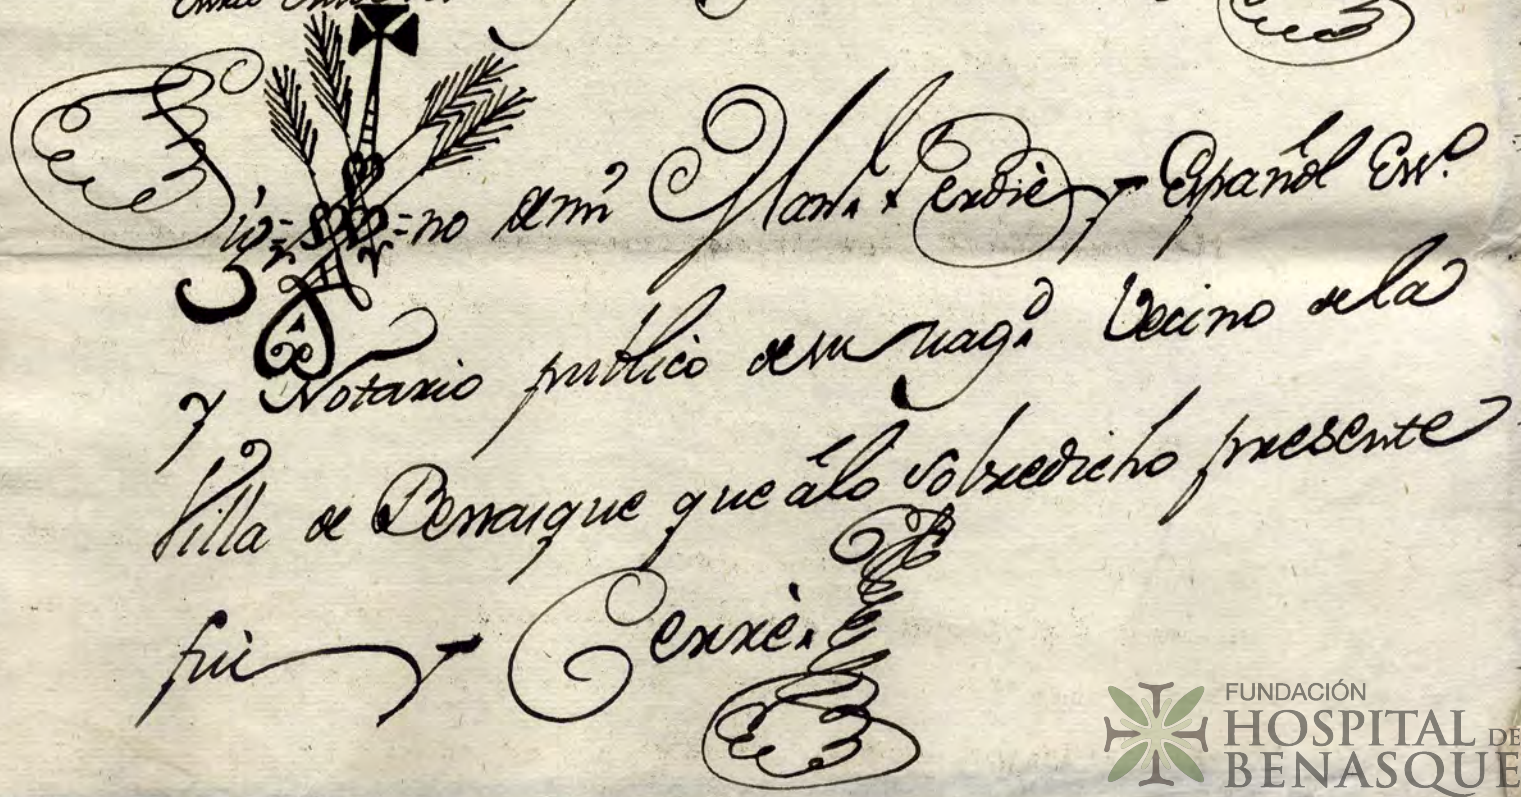 Sig-no de mi Man.l Ferdiè y Español Ess.o
y Notario publico de su Mag.d Vecino de la
Villa de Benasque que àlo sobredicho presente
fuì
Cerrè.
FUNDACIÓN
HOSPITAL DE
BENASQUE